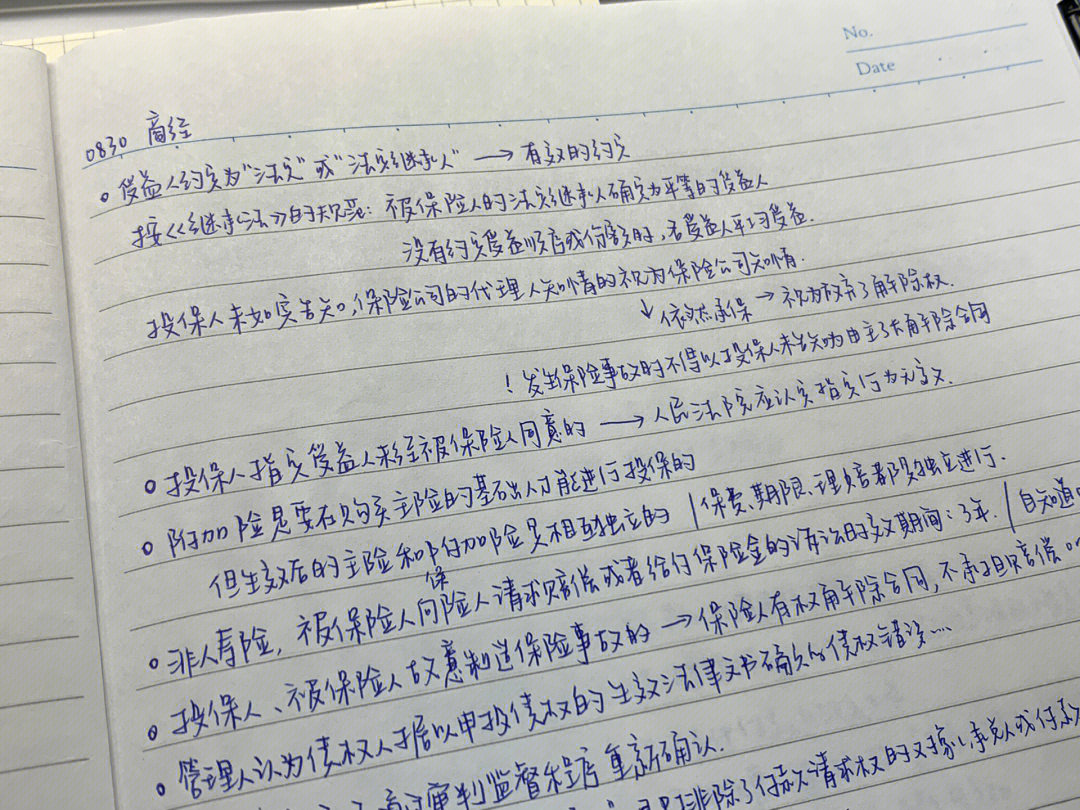 No.
Date
0830 商经
受益人约定为"法定"或"法定继承人" → 有效的约定
按《继承法》的规定: 被保险人的法定继承人确定为平等的受益人
没有约定受益顺序或份额时,各受益人平均受益.
投保人未如实告知,保险公司的代理人知情的视为保险公司知情.
↓ 依然承保 → 视为放弃了解除权.
! 发生保险事故时不得以投保人未告知为由主张解除合同
投保人指定受益人未经被保险人同意的 → 人民法院应认定指定行为无效.
附加险是要在购买主险的基础上才能进行投保的
但生效后的主险和附加险是相互独立的 | 保费、期限、理赔都隔独立进行.
非人寿险, 被保险人向保险人请求赔偿或者给付保险金的诉讼时效期间: 3年. | 自知道
投保人、被保险人故意制造保险事故的 → 保险人有权解除合同, 不承担赔偿
管理人认为债权人据以申报债权的生效法律文书确定的债权错误…
审判监督程序重新确认.
排除了付款请求权的 对 承兑人或付款